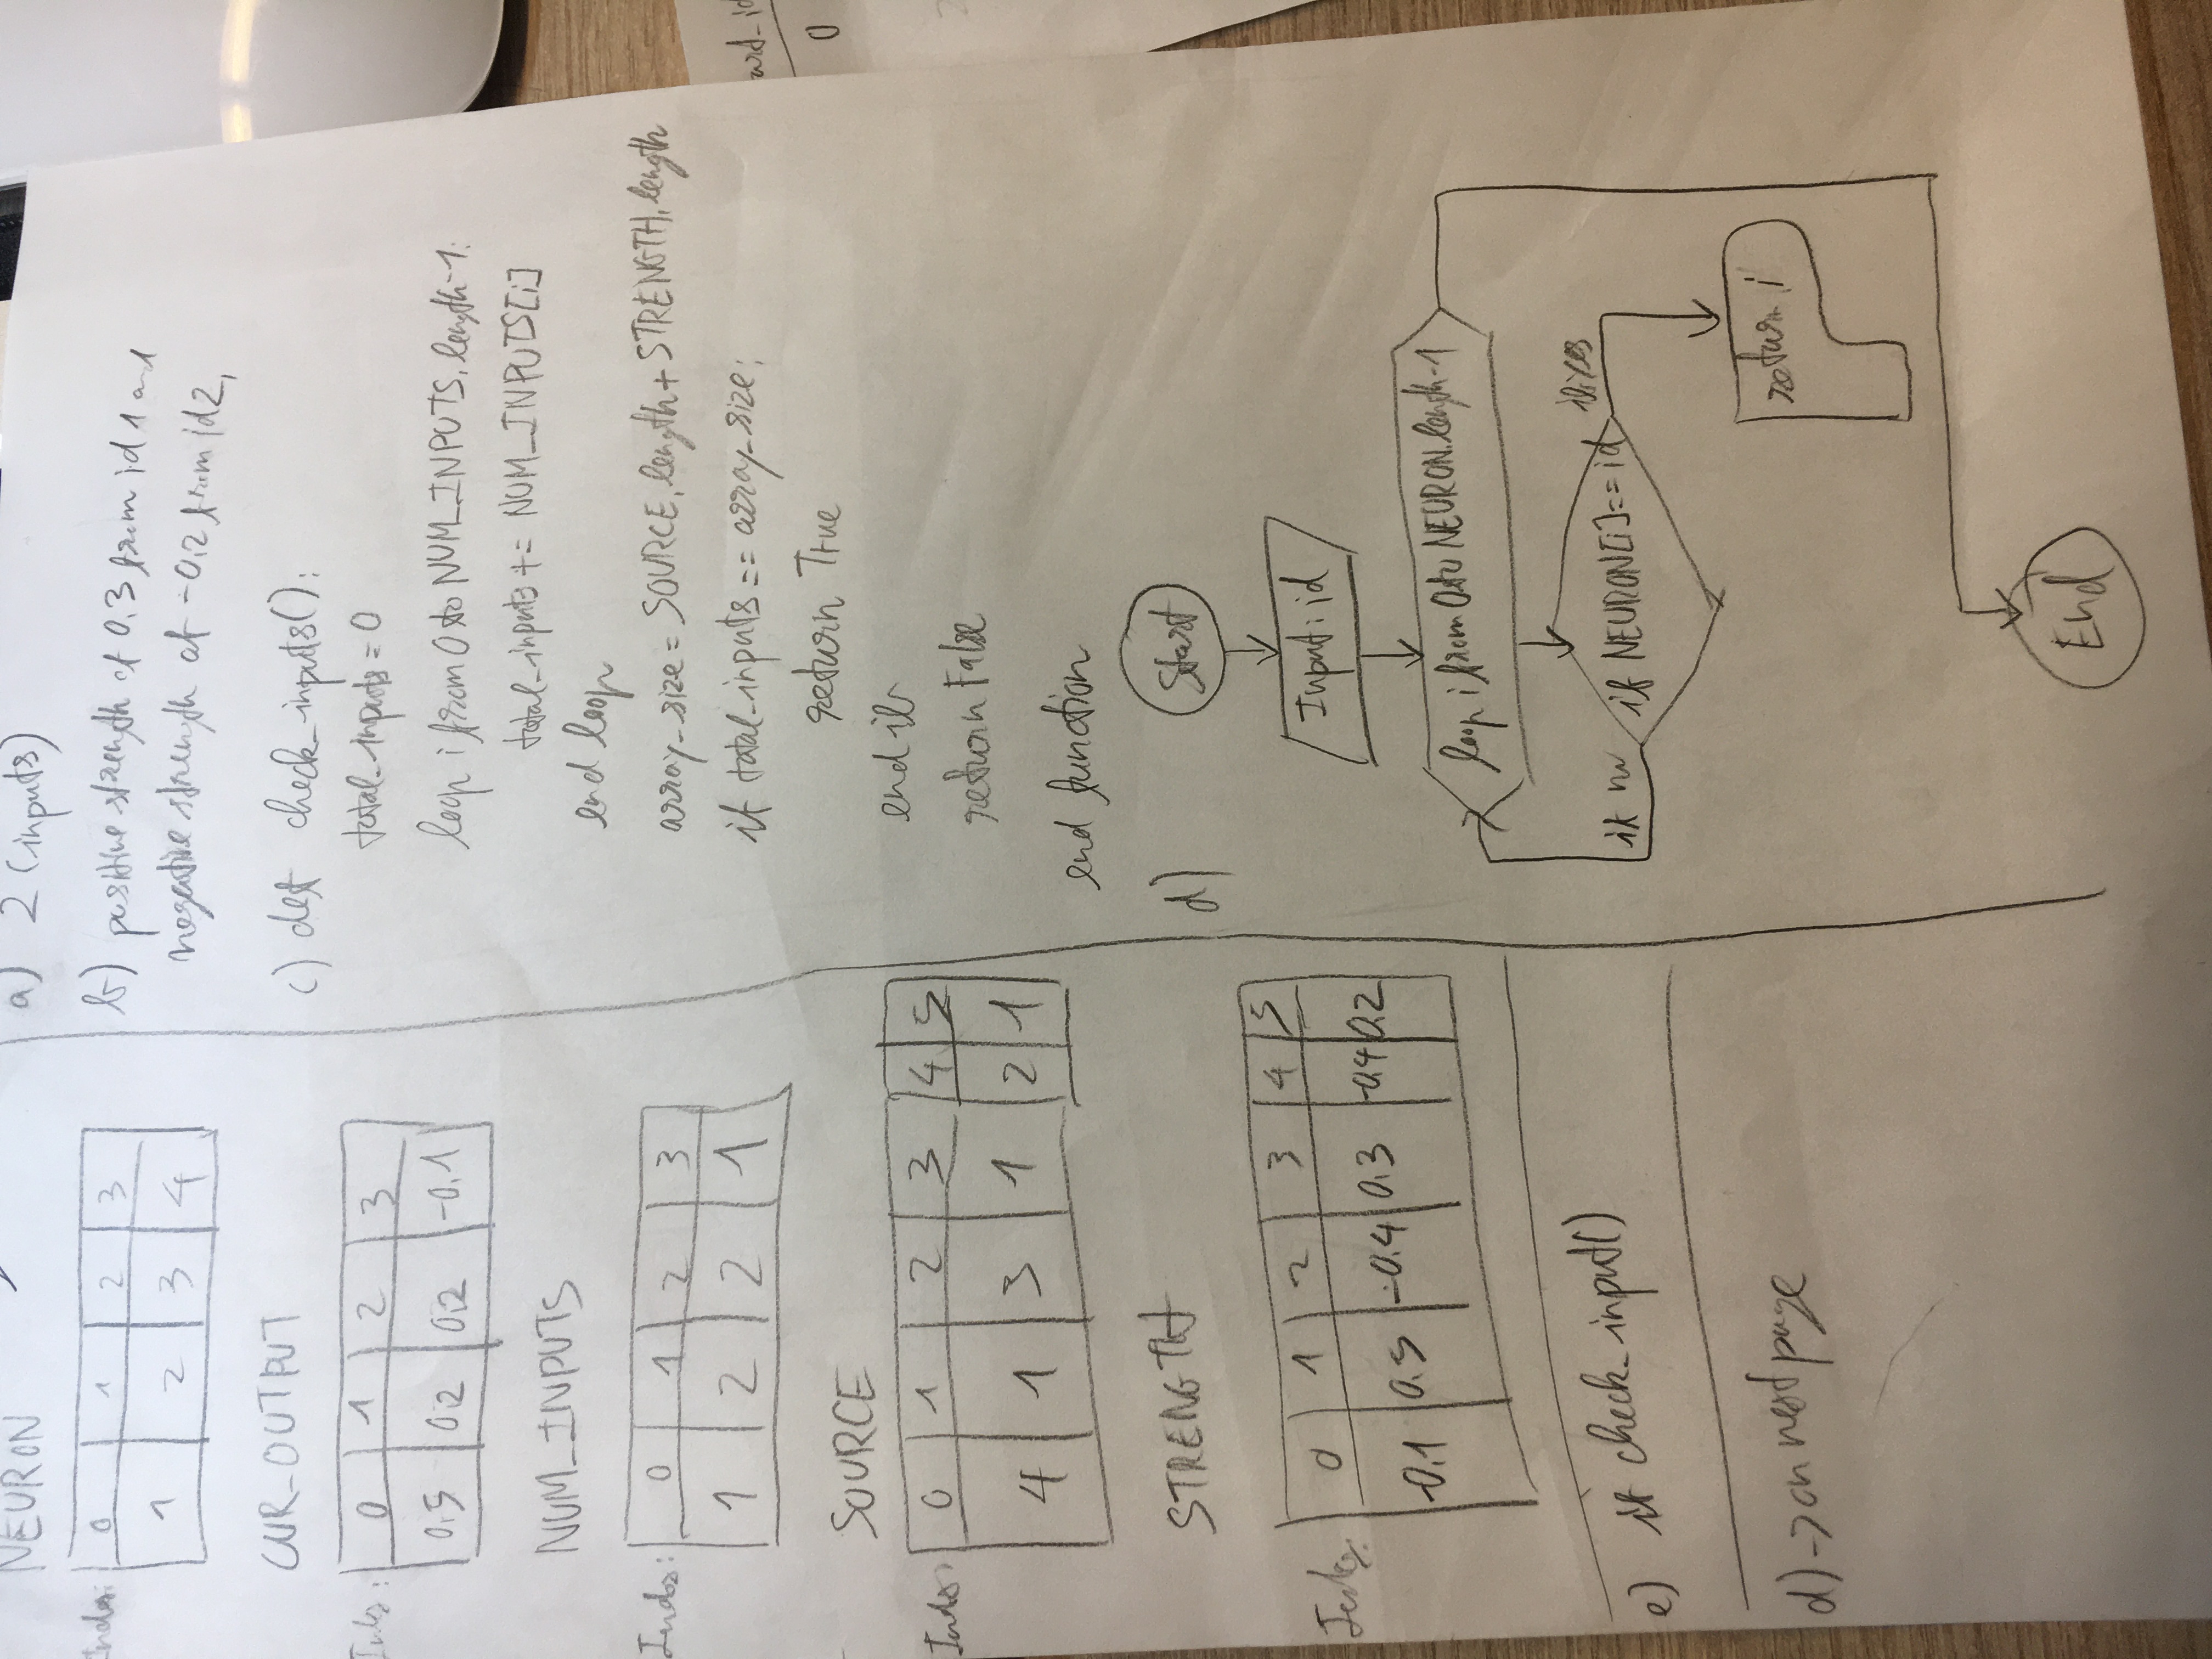 NEURON
Index:
0 1 2 3
1 2 3 4
CUR_OUTPUT
0 1 2 3
0.5 0.2 0.2 -0.1
NUM_INPUTS
Index:
0 1 2 3
1 2 2 1
SOURCE
Index:
0 1 2 3 4 5
4 1 3 1 2 1
STRENGTH
Index:
0 1 2 3 4 5
-0.1 0.5 -0.4 0.3 -0.4 0.2
e) if check_input()
d) -> on next page
a) 2 (inputs)
b) positive strength of 0.3 from id 1 and
negative strength of -0.2 from id 2,
c) def check_inputs():
total_inputs = 0
loop i from 0 to NUM_INPUTS.length-1:
total_inputs += NUM_INPUTS[i]
end loop
array_size = SOURCE.length + STRENGTH.length
if total_inputs == array_size:
return True
end if
return False
end function
d)
Start
Input: id
loop i from 0 to NEURON.length-1
if NEURON[i] == id
if no
if yes
return i
End
0